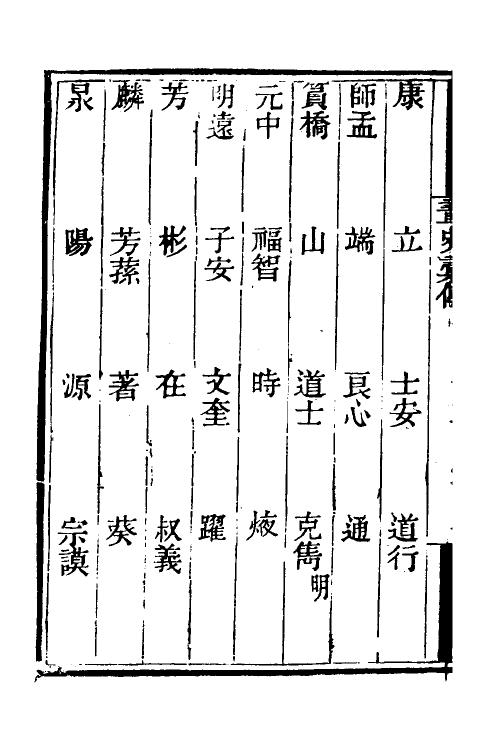 康　立　士安　道行
師盂　端　良心　通
負橋　山　道士　克雋明
元中　福智　時　焲
明遠　子安　文奎　躍
芳　彬　在　叔義
麟　芳蓀　著　葵
泉　陽　源　宗謨
畫史彙傳